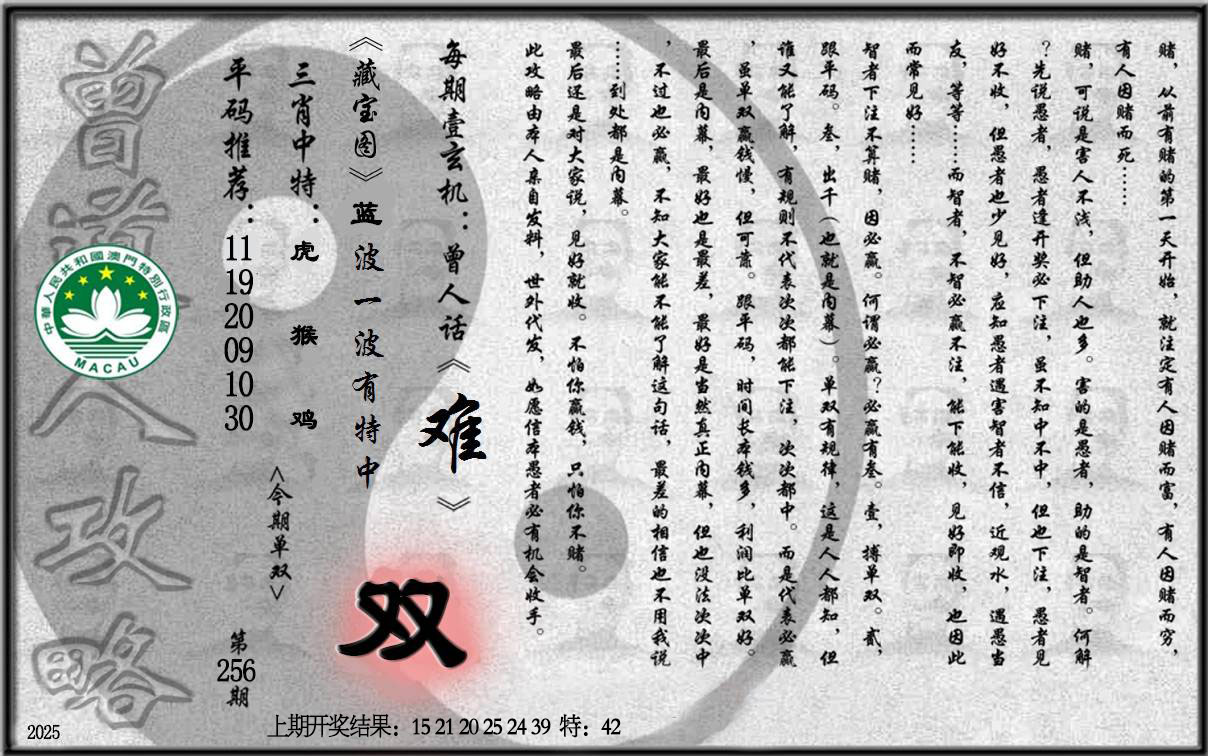 赌，从前有赌的第一天开始，就注定有人因赌而富，有人因赌而穷，
有人因赌而死……
赌，可说是害人不浅，但助人也多。害的是愚者，助的是智者。何解
？先说愚者，愚者逢开奖必下注，虽不知中不中，但也下注，愚者见
好不收，但愚者也少见好，应知愚者遇害智者不信，近观水，遇愚当
友，等等……而智者，不智必赢不注，能下能收，见好即收，也因此
而常见好……
智者下注不算赌，因必赢。何谓必赢？必赢有叁。壹，搏单双。贰，
跟平码。叁，出千（也就是内幕）。单双有规律，这是人人都知，但
谁又能了解，有规则不代表次次都能下注，次次都中。而是代表必赢
，虽单双赢钱慢，但可靠。跟平码，时间长本钱多，利润比单双好。
最后是内幕，最好也是最差，最好是当然真正内幕，但也没法次次中
，不过也必赢，不知大家能不能了解这句话，最差的相信也不用我说
……到处都是内幕。
最后还是对大家说，见好就收。不怕你赢钱，只怕你不赌。
此攻略由本人亲自发料，世外代发，如愿信本愚者必有机会收手。
每期壹玄机：曾人话《难》
《藏宝图》蓝波一波有特中
双
三肖中特：虎 猴 鸡
<今期单双>
平码推荐：11 19 20 09 10 30
第256期
曾道人攻略
中華人民共和國澳門特別行政區
MACAU
2025
上期开奖结果：15 21 20 25 24 39 特：42